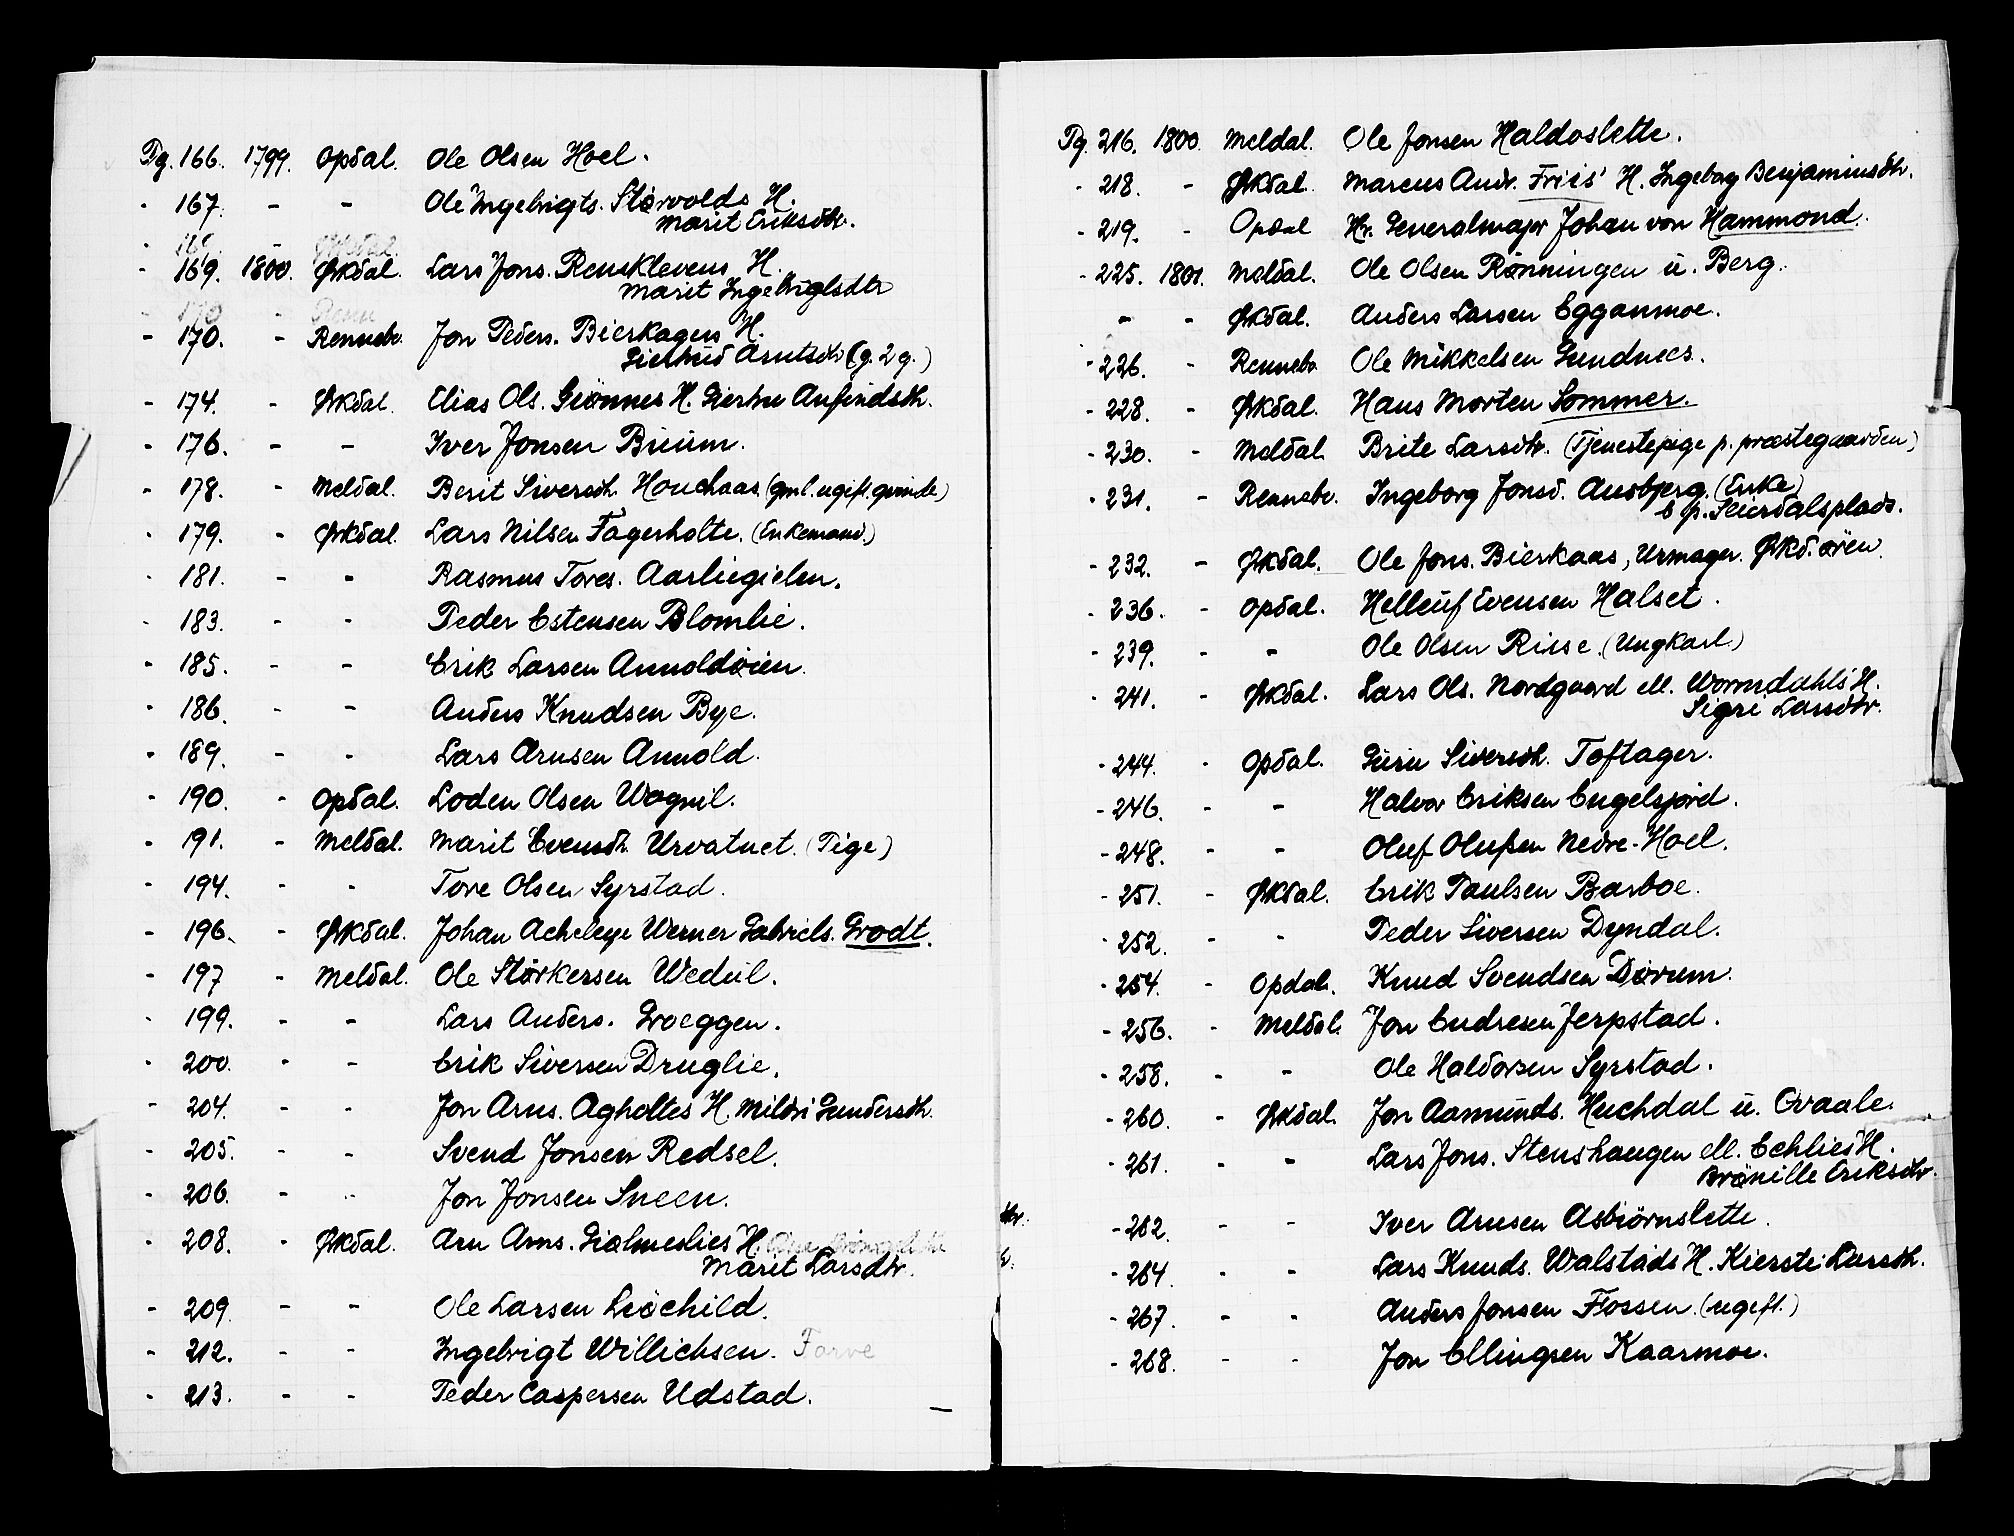 Pg. 166. 1799. Opdal. Ole Olsen Hoel.
- 167. - - Ole Ingebrigts. Størvolds H.
Marit Eriksdtr.
- 169. 1800. Ørkdal. Lars Jons. Rensklevens H.
Marit Ingebrigtsdtr
- 170. - Rennebo. Jon Peders. Bierkagers H.
Giertrud Arntsdtr (g. 2 g.)
- 174. - Ørkdal. Elias Ols. Giønnes H. Giertru Anfindsdtr.
- 176. - - Iver Jonsen Bruum.
- 178. - Meldal. Berit Siversdtr. Houchaas (gml. ugift qvinde)
- 179. - Ørkdal. Lars Nilsen Fagerholte. (Enkemand.)
- 181. - - Rasmus Tores. Aarliegielen.
- 183. - - Peder Estensen Blomlie.
- 185. - - Erik Larsen Annoldøien.
- 186. - - Anders Knudsen Bye.
- 189. - - Lars Arnsen Annold.
- 190. - Opdal. Loden Olsen Wognil.
- 191. - Meldal. Marit Evensdtr. Urvatnet. (Pige)
- 194. - - Tore Olsen Syrstad.
- 196. - Ørkdal. Johan Acheleye Werner Gabriels. Grodt.
- 197 - Meldal. Ole Størkersen Wedul.
- 199. - - Lars Anders. Groeggen.
- 200. - - Erik Siversen Druglie.
- 204. - - Jon Arns. Agholtes H. Mildri Gundersdtr.
- 205. - - Svend Jonsen Redsel.
- 206. - - Jon Jonsen Sneen.
- 208. - Ørkdal. Arn Arns. Gialmeslies H.
Marit Larsdtr.
- 209. - - Ole Larsen Liøchild.
- 212. - - Ingebrigt Willichsen. Farve
- 213. - - Peder Caspersen Udstad.
Pg. 216. 1800. Meldal. Ole Jonsen Haldoslette.
- 218. - Ørkdal. Marcus Andr. Friis' H. Ingeborg Benjaminsdtr.
- 219. - Opdal Hr. Generalmajor Johan von Hammond.
- 225. 1801. Meldal. Ole Olsen Rønningen u. Berg.
- - Ørkdal. Anders Larsen Egganmoe.
- 226. - Rennebo Ole Mikkelsen Gundnes.
- 228. - Ørkdal. Hans Morten Sommer.
- 230. - Meldal. Brite Larsdtr. (Tjenestepige p. præstegaarden)
- 231. - Rennebo. Ingeborg Jonsd. Ausbjerg. (Enke)
p. Seierdalsplads.
- 232. - Ørkdal. Ole Jons. Bierkaas, Urmager. Ørkd.øren.
- 236. - Opdal. Helleuf Evensen Halset.
- 239. - - Ole Olsen Riise. (Ungkarl.)
- 241. - Ørkdal. Lars Ols. Nordgaard ell. Wormdahls H.
Sigri Larsdtr.
- 244. - Opdal. Guru Siversdtr. Toftager.
- 246. - - Halvor Eriksen Engelsjord.
- 248. - - Oluf Olufsen Nedre-Hoel.
- 251. - Ørkdal. Erik Paulsen Barboe.
- 252. - - Peder Siversen Dyndal.
- 254. - Opdal. Knud Svendsen Dørum.
- 256. - Meldal. Jon Endresen Jerpstad.
- 258. - - Ole Haldorsen Syrstad.
- 260. - Ørkdal. Jon Aamunds. Huchdal u. Qvaale.
- 261. - - Lars Jons. Stenshaugen ell. Echlies H.
Brønille Eriksdtr.
- 262. - - Iver Arnsen Asbiørnslette.
- 264. - - Lars Knuds. Walstads H. Kiersti Larsdtr.
- 267. - - Anders Jonsen Flossen. (ugift.)
- 268. - - Jon Ellingsen Kaarmoe.